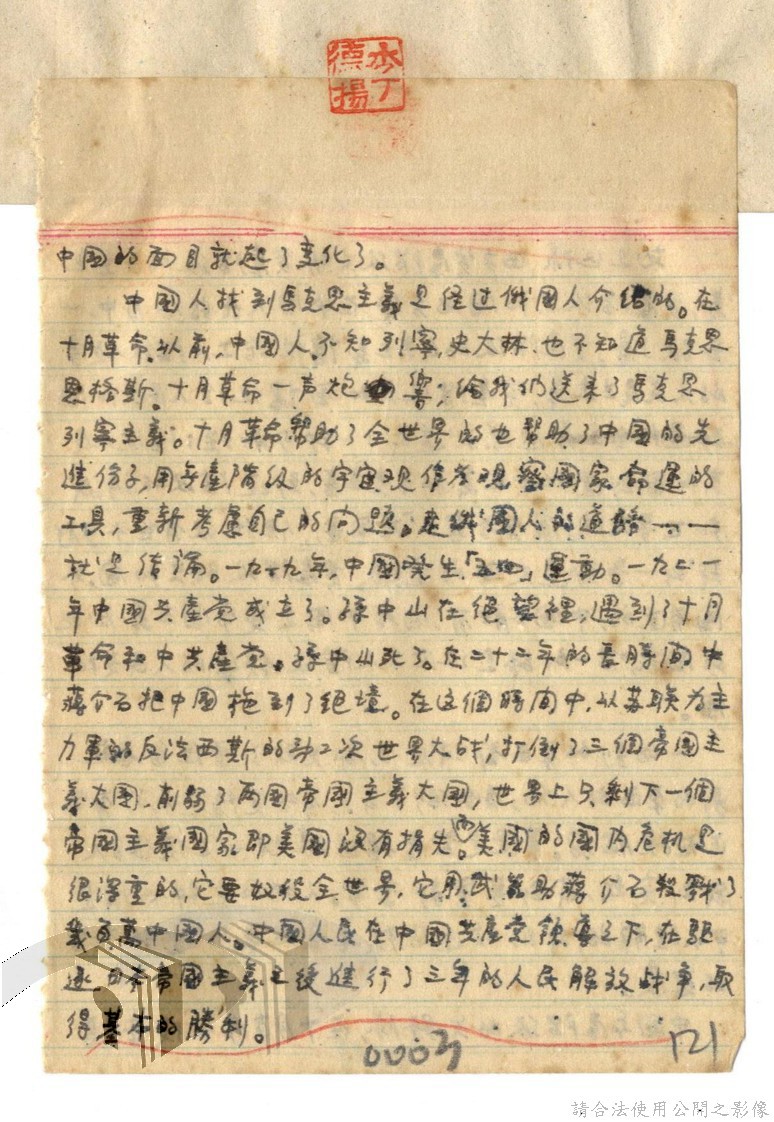 李德揚
中國的面目就起了变化了。
中國人找到馬克思主義是经过俄國人介绍的。在
十月革命以前,中國人不知列寧,史大林,也不知道馬克思
恩格斯。十月革命一声炮響;给我们送来了馬克思
列寧主義。十月革命帮助了全世界的也帮助了中國的先
進份子,用产階级的宇宙观作为观察國家命運的
工具,重新考慮自己的问題。走俄國人的道路——
就是结論。一九一九年,中國発生「五四」運動。一九二一
年中國共產党成立了。孫中山在絕望裡,遇到了十月
革命和中共產党。孫中山死了。在二十二年的長時间中
蒋介石把中國拖到了绝境。在这個時间中,以苏联为主
力軍的反法西斯的第二次世界大战,打倒了三個帝国主
義大國,削弱了两國帝國主義大國,世界上只剩下一個
帝國主義國家即美國没有損失。美國的國内危机是
很深重的,它要奴役全世界,它用武器助蒋介石殺戮了
幾百萬中國人。中國人民在中國共產党領導之下,在駆
逐日本帝國主義之後進行了三年的人民解放战争,取
得基本的勝利。
0003
121
請合法使用公開之影像